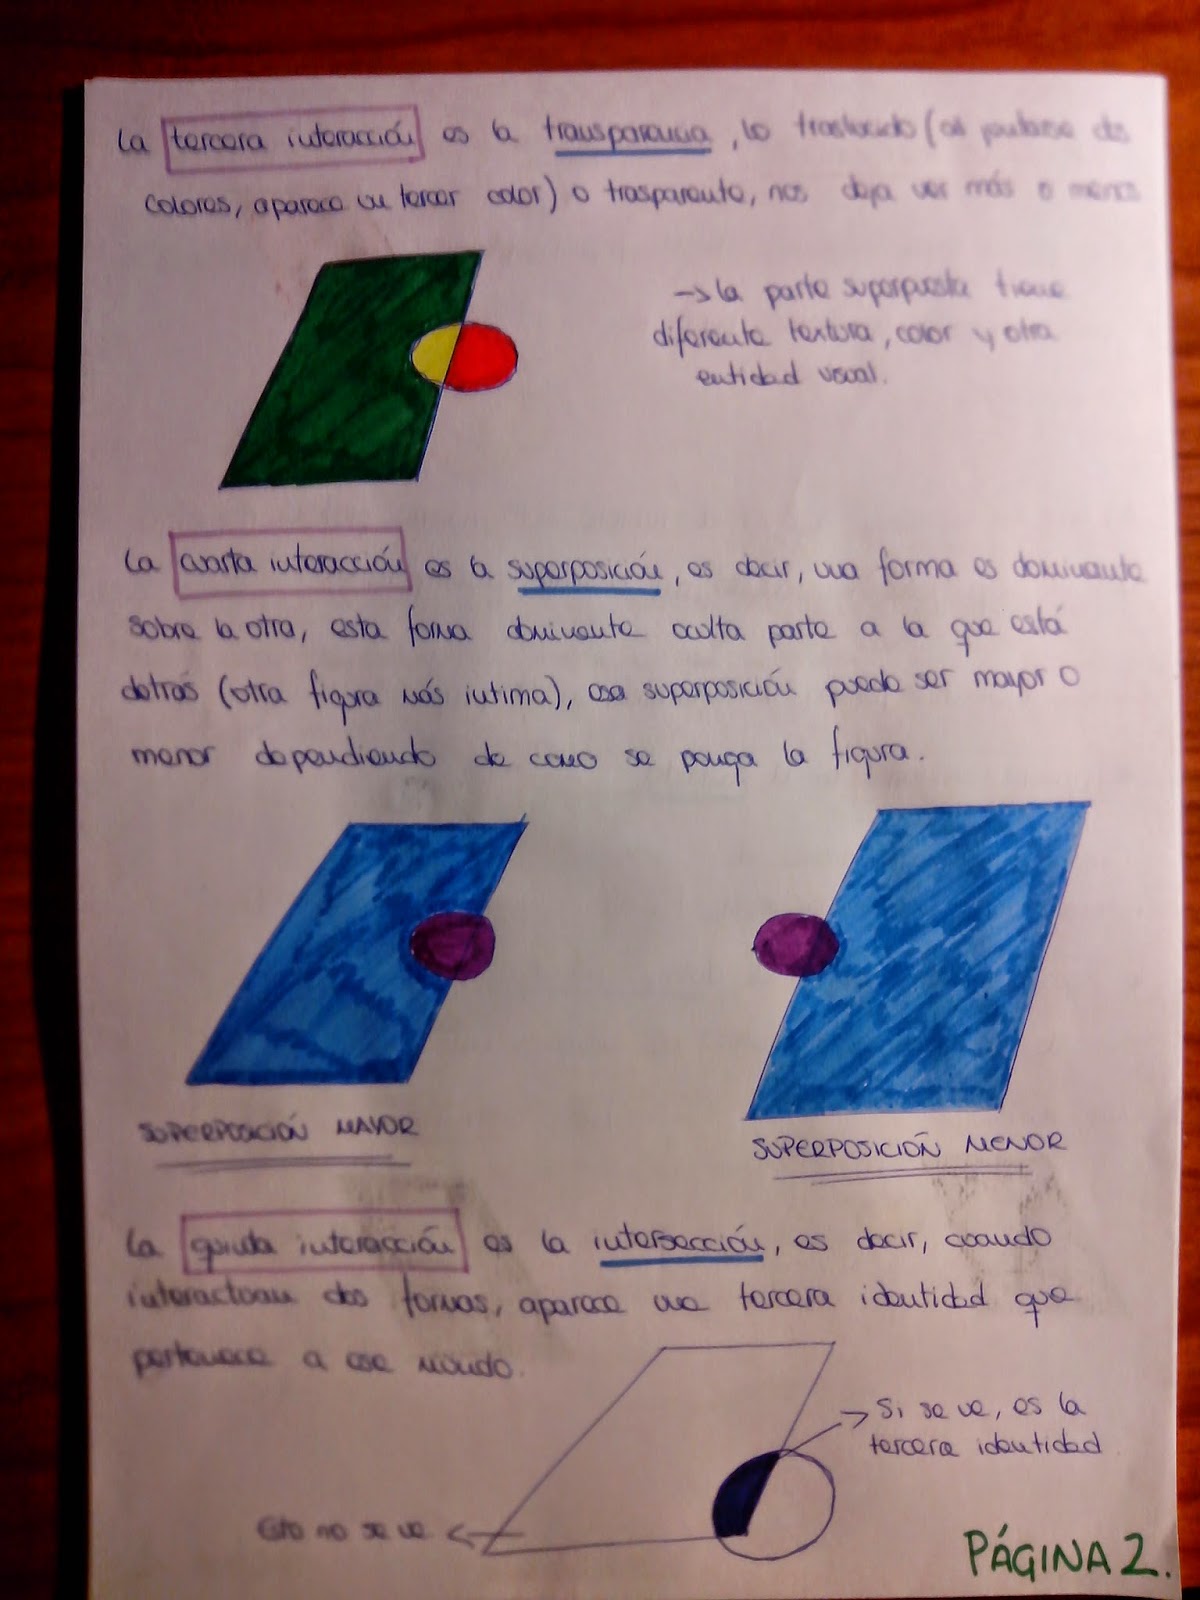 La tercera interacción es la transparencia, lo traslucido (al juntarse dos
colores, aparece un tercer color) o trasparente, nos deja ver más o menos
→ la parte superpuesta tiene
diferente textura, color y otra
entidad visual.
La cuarta interacción es la superposición, es decir, una forma es dominante
sobre la otra, esta forma dominante oculta parte a la que está
detrás (otra figura más intima), esa superposición puede ser mayor o
menor dependiendo de como se ponga la figura.
SUPERPOSICIÓN MAYOR
SUPERPOSICIÓN MENOR
La quinta interacción es la intersección, es decir, cuando
interactuan dos formas, aparece una tercera identidad que
pertenece a ese mundo.
→ Si se ve, es la
tercera identidad
Esto no se ve ←
PÁGINA 2.